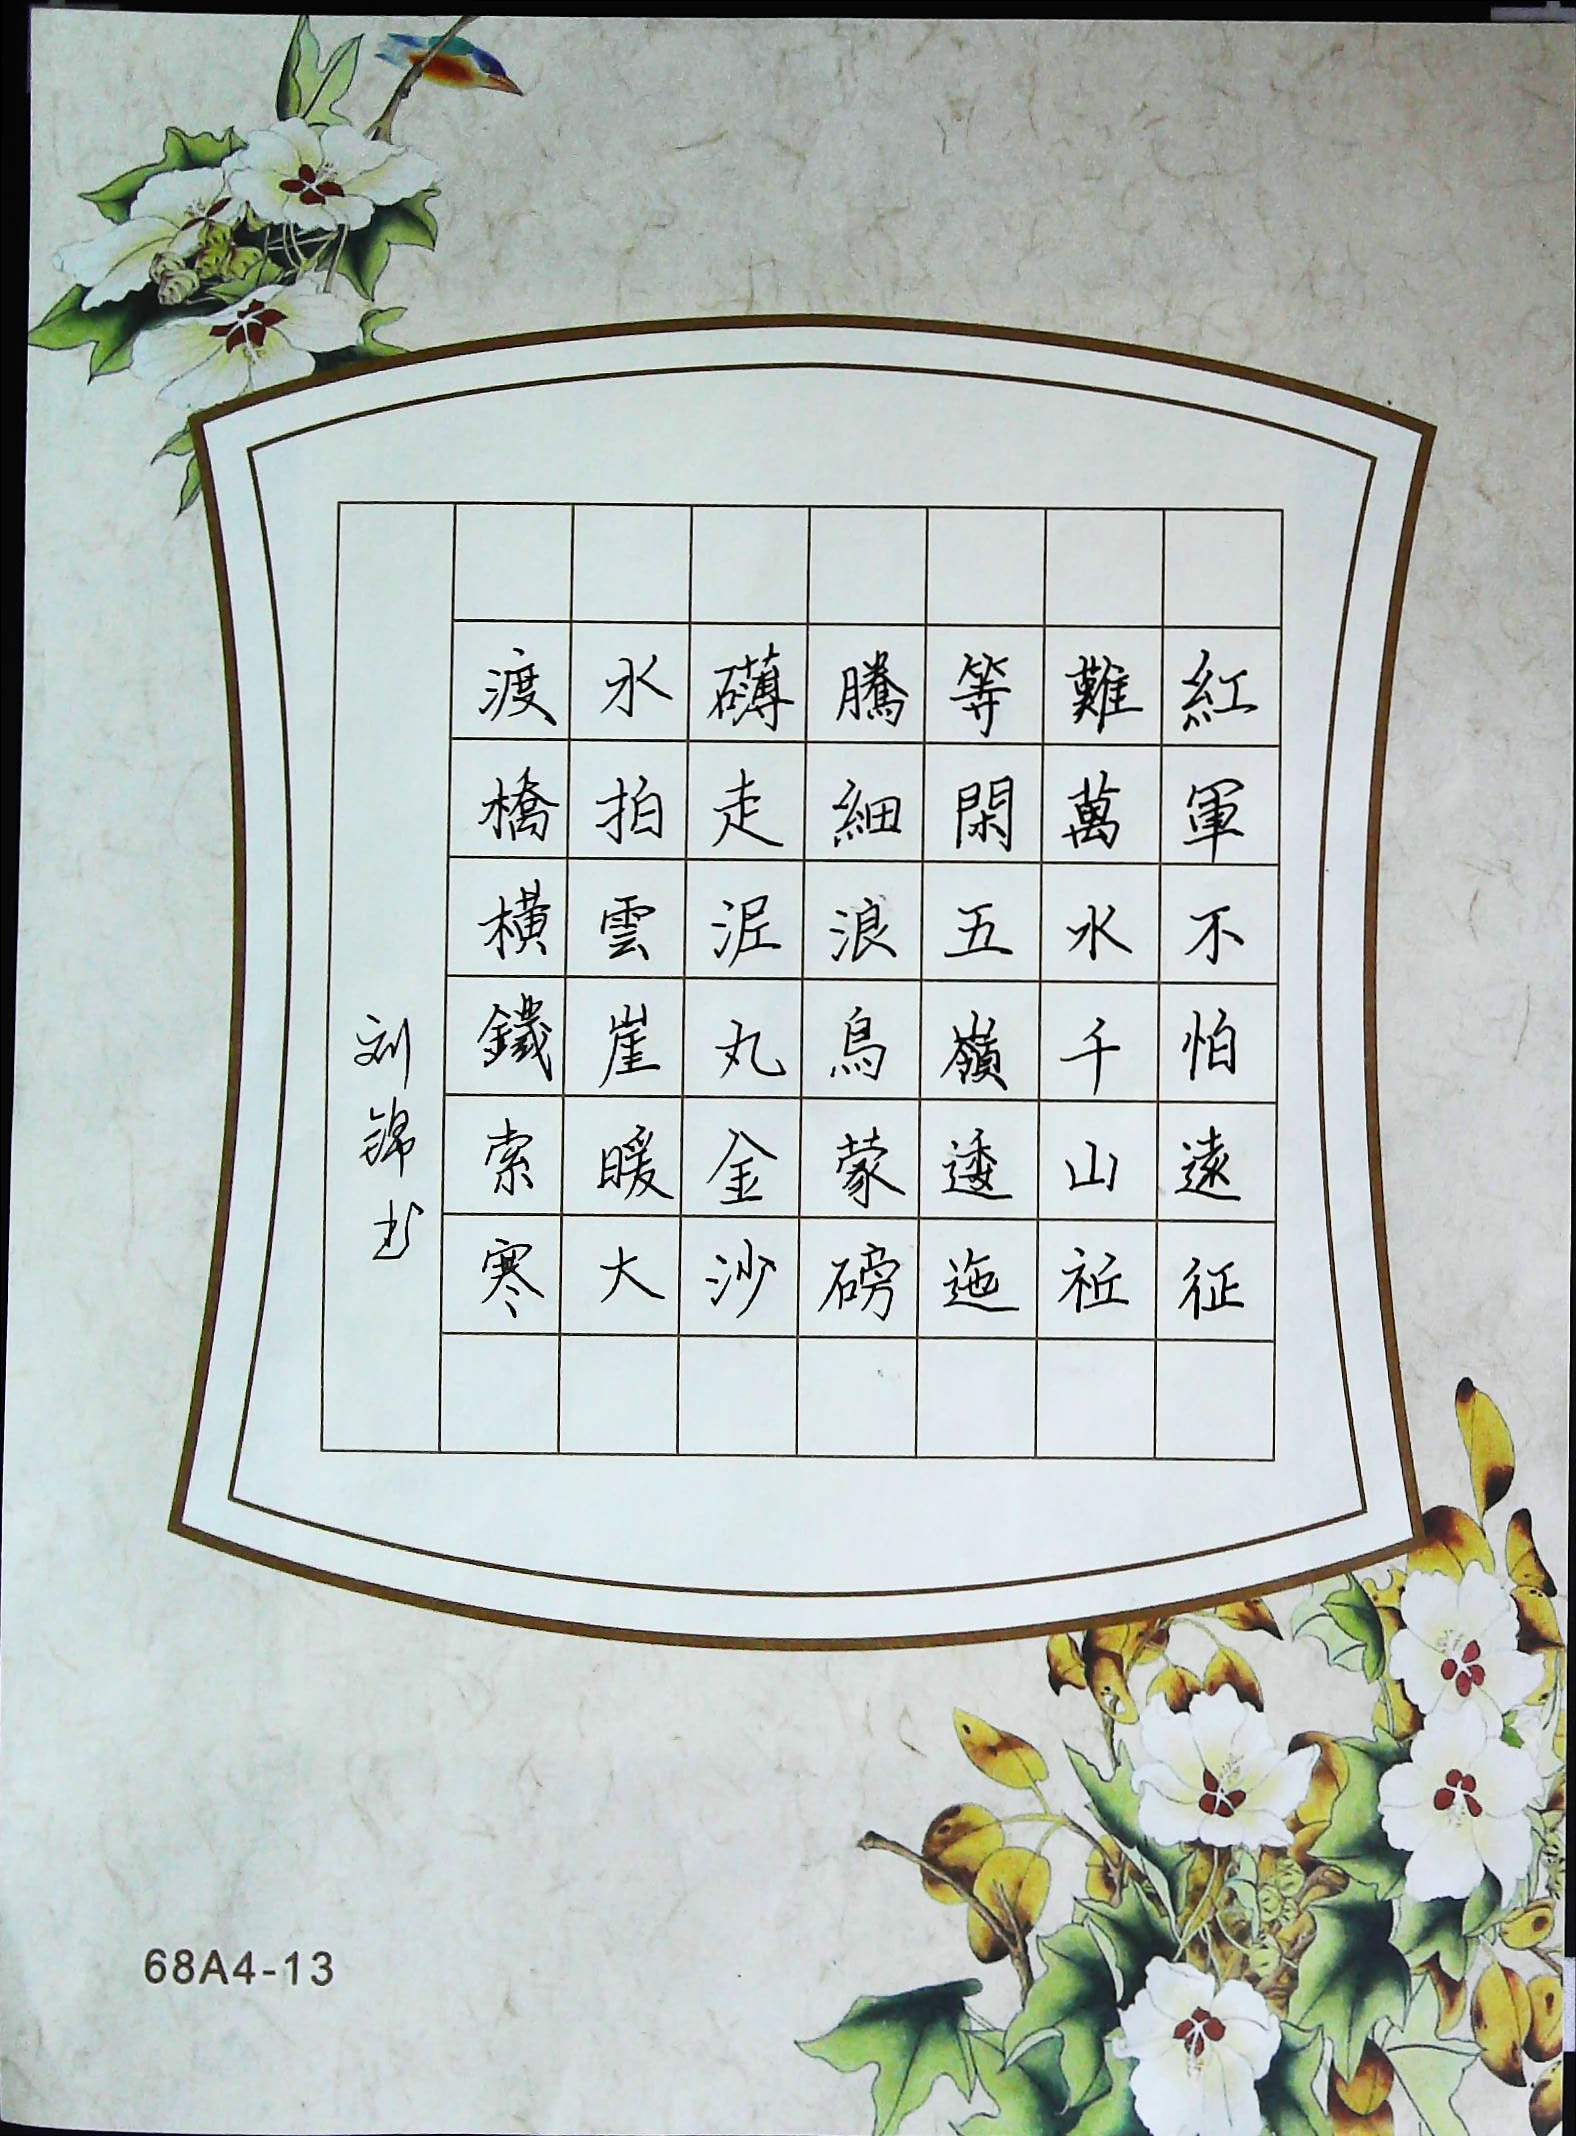 紅軍不怕遠征
難萬水千山祗
等閑五嶺逶迤
騰細浪烏蒙磅
礴走泥丸金沙
水拍雲崖暖大
渡橋橫鐵索寒
刘锦书
68A4-13